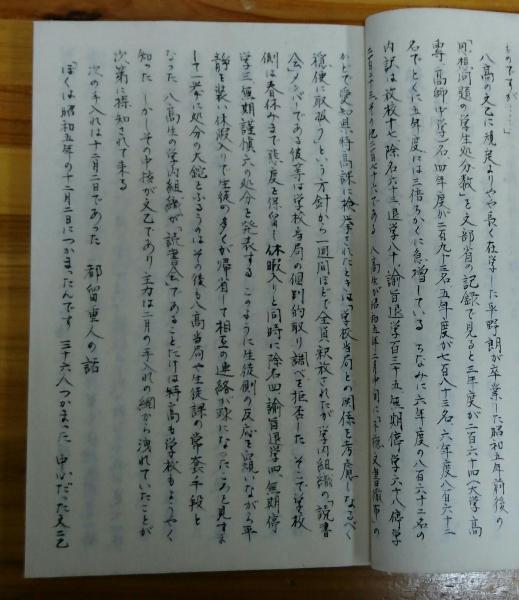 ものですが……」
八高の文乙に規定よりやや長く在学した平野朗が卒業した昭和五年前後の
「思想問題の学生処分数」を文部省の記録で見ると三年度が二百六十四(大学 高
専 高師 中学)名 四年度が二百九十三名 五年度が七百八十三名、六年度八百六十二
名でとくに五年度には三倍ちかくに急増している ちなみに六年度の八百六十二名の
内訳は放校十七 除名六十三 退学八十 諭旨退学百三十五 無期停学六十八 停学
八高生が昭和五年二月中旬に「不穏文書撒布」の
かどで愛知県特高課に検挙されたときは「学校当局との関係を考慮しなるべく
穏便に取扱う」という方針から一週間ほどで全員釈放されたが学内組織の「読書
会」メンバーである彼等は学校当局の個別的取り調べを拒否した そこで学校
側は春休みまで態度を保留し休暇入りと同時に除名四 諭旨退学四、無期停
学三 無期謹慎六の処分を発表する このように生徒側の反応を窺いながら平
静を装い休暇入りで生徒の多くが帰省して相互の連絡が疎になったころを見すま
して一挙に処分の大鉈をふるうのはその後も八高当局や生徒課の常套手段と
なった 八高生の学内組織が「読書会」であることだけは特高も学校もようやく
知った しかしその中核が文乙であり主力は二月の手入れの網から洩れていたことが
次第に探知されて来る
次の手入れは十二月二日であった 都留重人の話
「ぼくは昭和五年の十二月二日につかまったんです 三十六人つかまった 中心だった文乙